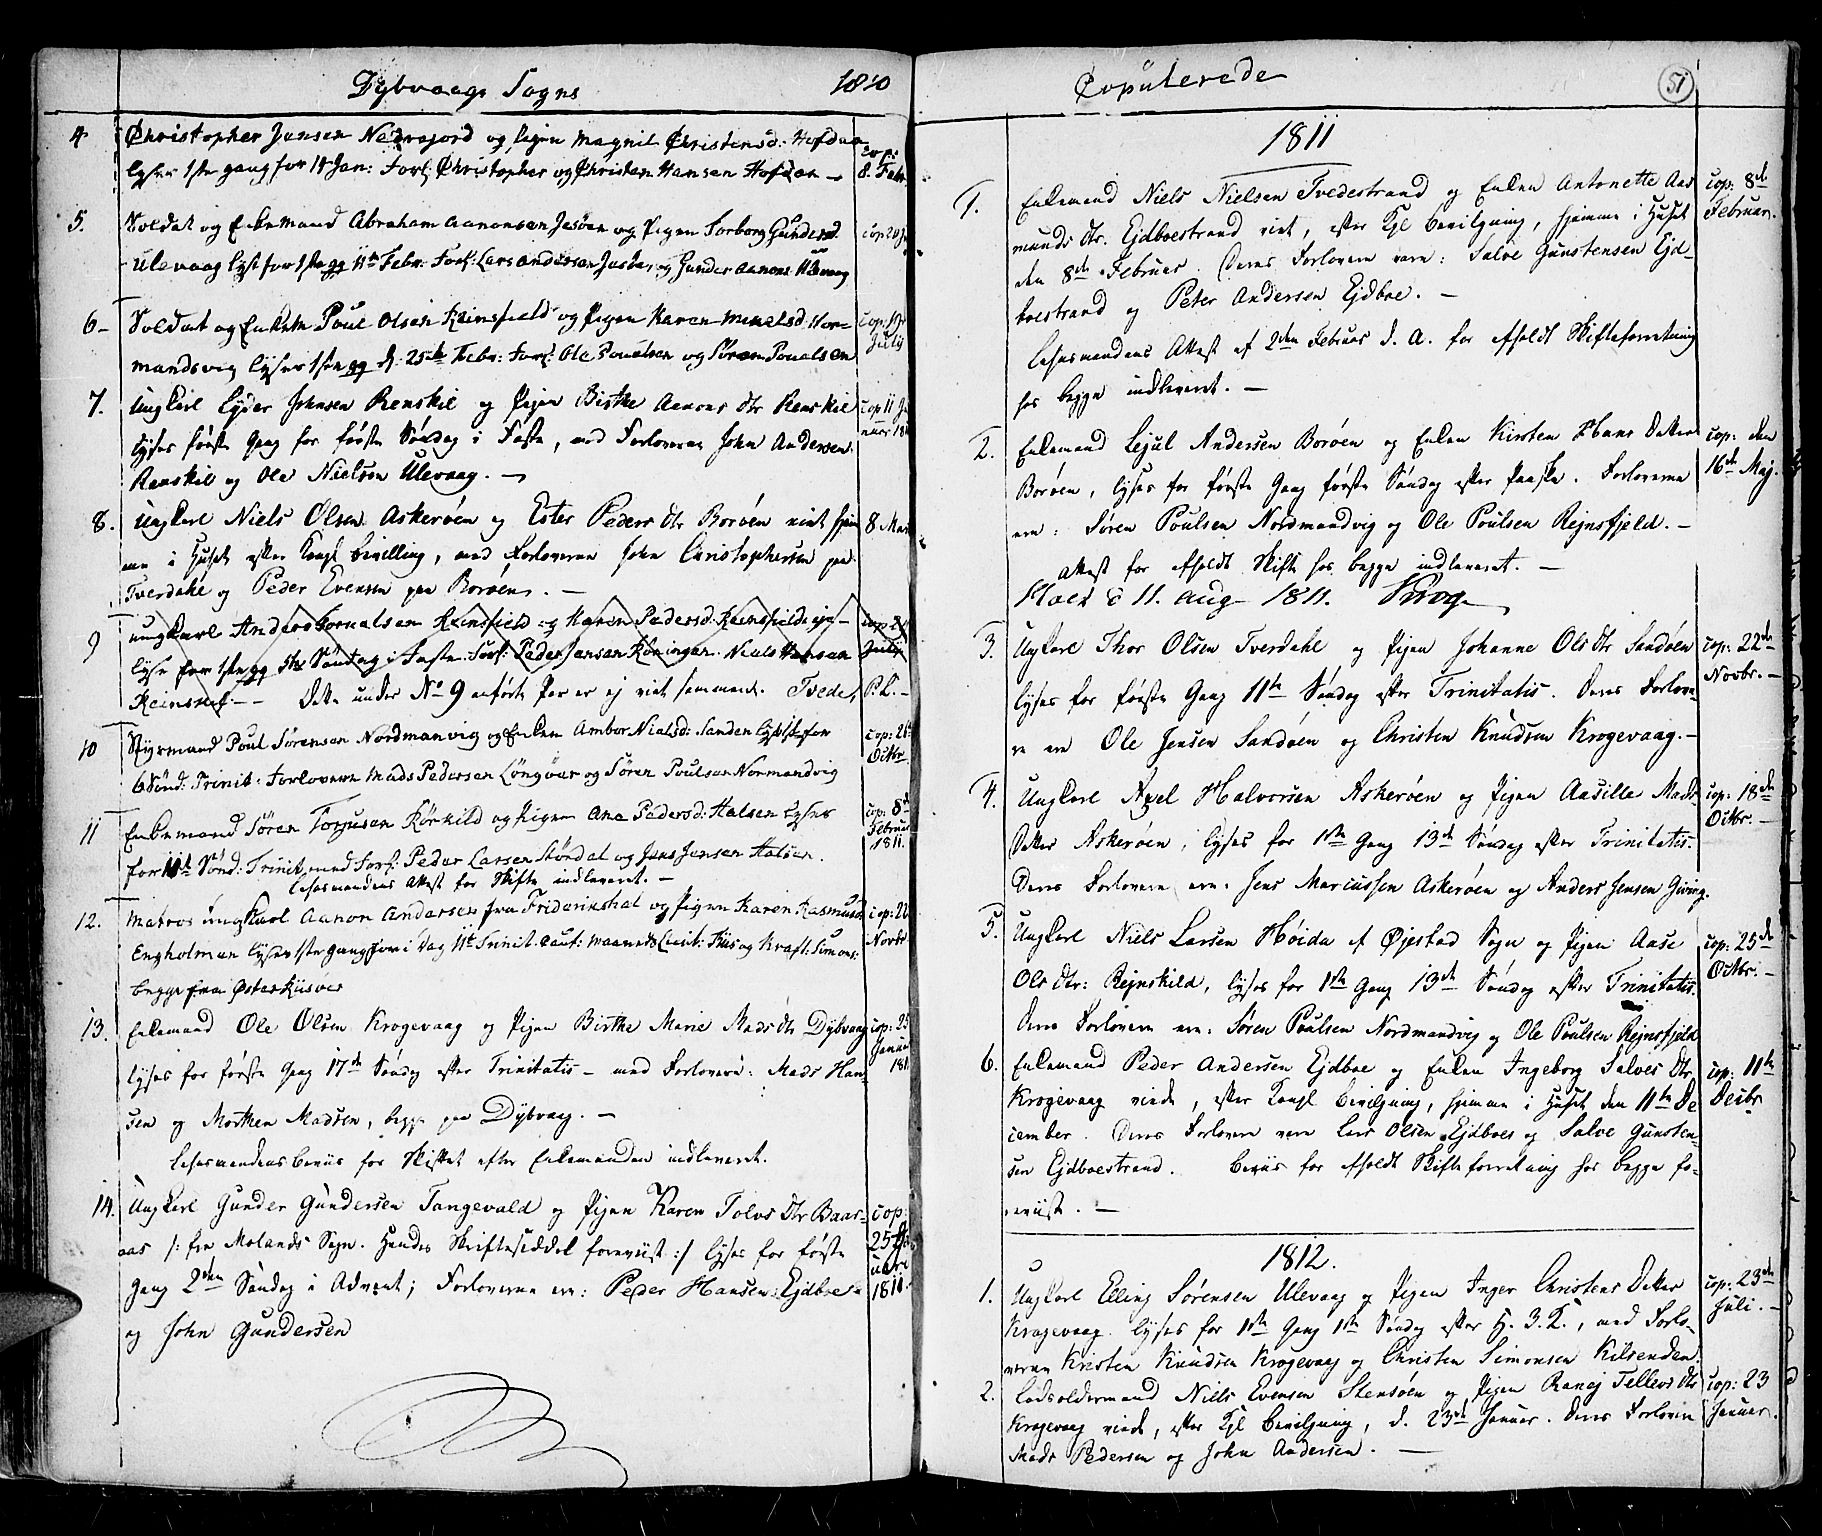 Dybvaags Sogns 1810
4 Christopher Jensen Nedrejord og Pigen Magnil Christensd: Hofdan cop:
lyses 1ste gang for 14 Jan: Forl: Christopher og Christen Hansen Hofdan — 8. Febr
5. Soldat og Enkemand Abraham Aanonsen Jesøen og Pigen Torborg Gundersd. cop 20
Ulevaag lyst for 1ste gg 11te Febr. Forl: Lars Andersen Jesøen og Gunder Aanons. Ulevaag
6 – Soldat og Enkem Poul Olsen Reinsfield og Pigen Karen Nielsd Nor= cop: 19
mandsvig lyses 1ste gg d. 25de Febr: Forl: Ole Pouelsen og Søren Pouelsen July
7. Ungkarl Eyder Johnsen Renskil og Pigen Birthe Aanons dtr Renskil cop 11 Ja
lyses første Gang for første Søndag i Faste, med Forlovere John Andersen nuar 18
Renskil og Ole Nielsen Ulevaag. —
8. Ungkarl Niels Olsen Askerøen og Ester Peders dtr Borøen viet hjem 8 Mar
me i Huset efter Kongl bevilling, med Forlovere John Christophersen paa
Tverdahl og Peder Evensen paa Borøen. —
9 Ungkarl Anders Torvalsen Reinsfield og Karen Pedersd: Reinsfield cop 2
lyse for 1ste gg 5te Søndag i Faste. Forl: Peder Jensen Röningen. Niels Hansen July
Reinsfief. — Dette under No 9 anførte Par er ej viet sammen. Tvede, P.L. —
10 Styrmand Poul Sørensen Nordmanvig og Enken Ambor Nielsd: Sanden lyst 1ste for cop: 21
6 Sønd: Trinit: Forlovere Mads Pedersen Löngöer og Søren Poulsen Normandvig Octbr
11 Enkemand Søren Torjusen Rörkild og Pigen Ane Pedersd: Halsen lyses cop: 8de
for 11te Sønd: Trinit, med Forl: Peder Larsen Stöndal og Jens Jensen Halsen. Februar
Lehnsmandens Attest for Skifte indleveret. — 1811.
12. Matros Ungkarl Aanon Andersen fra Friderikshal og Pigen Karen Rasmusd cop: 22
Engholmen lyses 1ste gang for i Dag 11te Trinit. Caut: Maaneds Lieut: Fiis og Kraft: Simons: Novbr
begge fra Østerriisøer
13. Enkemand Ole Olsen Krogevaag og Pigen Birthe Marie Mads dtr Dybvaag cop: 25
lyses for første Gang 17de Søndag efter Trinitatis – med Forlovere: Mads Han= Janua
sen og Morthen Madsen, begge paa Dybvaag. — 181
Lehnsmandens beviis for Skiftet efter Enkemanden indleveret.
14. Ungkarl Gunder Gundersen Tangevald og Pigen Karen Tolvs dtr Baas= cop:
aas /: fra Molands Sogn. Hendes Skrifteseddel foreviist :/ lyses for første 25
Gang 2den Søndag i Advent; Forloverne ere: Peder Hansen Ejdboe
og John Gundersen
Copulerede 51
1811
1. Enkemand Niels Nielsen Tvedestrand og Enken Antonette Aas cop: 8de
munds dtr. Ejdboestrand viet, efter Kgl bevilgning, hjemme i Huset Februar.
den 8de Februar. Deres Forlovere vare: Salve Gunstensen Ejd=
boestrand og Peter Andersen Ejdboe. —
Lehnsmandens Attest af 2den Februar d. A. for afholdt Skifteforretning
hos begge indleveret. —
2. Enkemand Lejul Andersen Borøen og Enken Kirsten Hans Datter cop: den
Borøen, lyses for første Gang første Søndag efter Paaske. Forloverne 16de Maj.
ere: Søren Poulsen Nordmandvig og Ole Poulsen Rejnsfjeld. —
Attest for afholdt Skifte hos begge indleveret. —
Holt d 11. Aug 1811. Krog
3. Ungkarl Thor Olsen Tverdahl og Pigen Johanne Ols dtr Sandøen cop: 22de
lyses for første Gang 11te Søndag efter Trinitatis. Deres Forlove= Novbr. —
re ere Ole Jensen Sandøen og Christen Knudsen Krogevaag. —
4. Ungkarl Axel Halvorsen Askerøen og Pigen Aasille Mads cop: 18de
Datter Askerøen, lyses for 1ste Gang 13de Søndag efter Trinitatis. Octbr. —
Deres Forlovere ere: Jens Marcussen Askerøen og Anders Jensen Giving.
5. Ungkarl Niels Larsen Höida af Øjestad Sogn og Pigen Aase cop: 25de
Ols dtr: Rejnskild, lyses for 1ste Gang 13de Søndag efter Trinitatis. Octbr. —
Deres Forlovere ere: Søren Poulsen Nordmandvig og Ole Poulsen Rejnsfjeld
6. Enkemand Peder Andersen Ejdboe og Enken Ingeborg Salves dtr cop: 11te
Krogevaag viede, efter Kongl bevilgning, hjemme i Huset den 11te De Decbr
cember. Deres Forlovere vare Lars Olsen Ejdboe og Salve Gunsten=
sen Ejdboestrand. Beviis for afholdt Skifteforretning hos begge fo=
reviist. —
1812.
1. Ungkarl Elling Sørensen Ulevaag og Pigen Inger Christens Datter cop: 23de
Krogevaag. lyses for 1ste Gang 1ste Søndag efter H. 3. K., med Forlo= Juli. —
verne Kristen Knudsen Krogevaag og Christen Simonsen Kilsenden.
2. Lodsoldermand Niels Evensen Stensøen og Pigen Ranej Tellevs dtr cop: 23
Krogevaag viede, efter Kgl bevilgning, d. 23de Januar. Deres Forlovere Januar.
Mads Pedersen og John Andersen. —